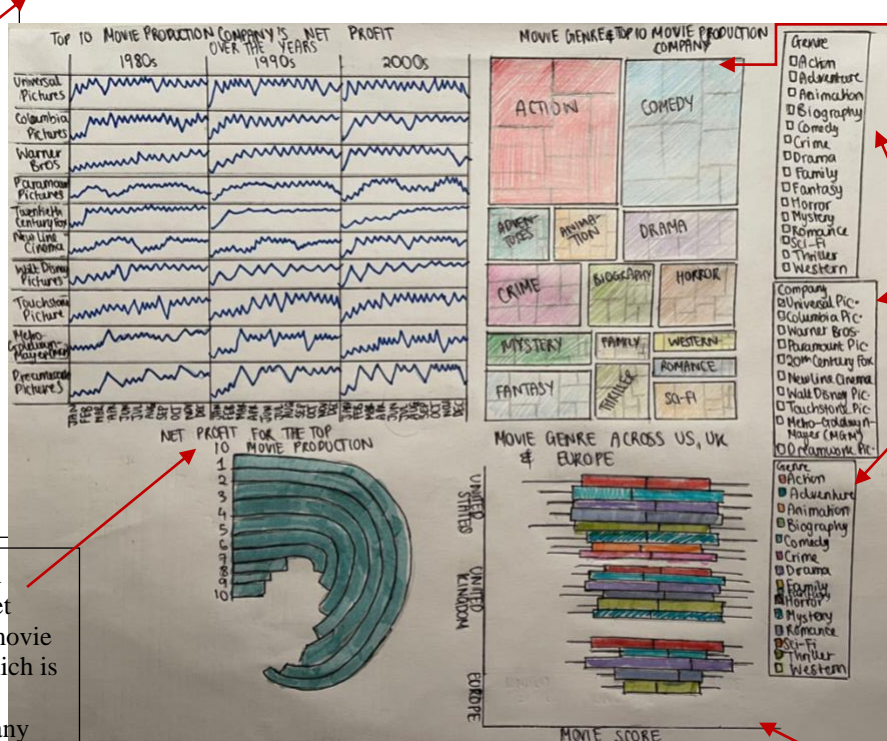 TOP 10 MOVIE PRODUCTION COMPANY'S NET PROFIT
OVER THE YEARS
1980s 1990s 2000s
Universal
Pictures
Columbia
Pictures
Warner
Bros
Paramount
Pictures
Twentieth
Century Fox
New Line
Cinema
Walt Disney
Pictures
Touchstone
Picture
Metro-
Goldwyn-
Mayer(MGM)
Dreamwork
Pictures
JAN FEB MAR APR JUN JUL AUG SEP OCT NOV DEC
JAN FEB MAR APR JUN JUL AUG SEP OCT NOV DEC
JAN FEB MAR APR JUL AUG SEP OCT NOV DEC
MOVIE GENRE & TOP 10 MOVIE PRODUCTION
COMPANY
ACTION
COMEDY
ADVEN-
TURES
ANIMA-
TION
DRAMA
CRIME
BIOGRAPHY
HORROR
MYSTERY
FAMILY
WESTERN
ROMANCE
FANTASY
THRILLER
SCI-FI
Genre
Action
Adventure
Animation
Biography
Comedy
Crime
Drama
Family
Fantasy
Horror
Mystery
Romance
Sci-Fi
Thriller
Western
Company
Universal Pic-
Columbia Pic-
Warner Bros-
Paramount Pic-
20th Century Fox
New Line Cinema
Walt Disney Pic-
Touchstone Pic-
Metro-Goldwyn-
Mayer (MGM)
Dreamwork Pic-
NET PROFIT FOR THE TOP
10 MOVIE PRODUCTION
1
2
3
4
5
6
7
8
9
10
MOVIE GENRE ACROSS US, UK
& EUROPE
UNITED
STATES
UNITED
KINGDOM
EUROPE
MOVIE SCORE
Genre
Action
Adventure
Animation
Biography
Comedy
Crime
Drama
Family
Fantasy
Horror
Mystery
Romance
Sci-Fi
Thriller
Western
et
movie
ich is
any